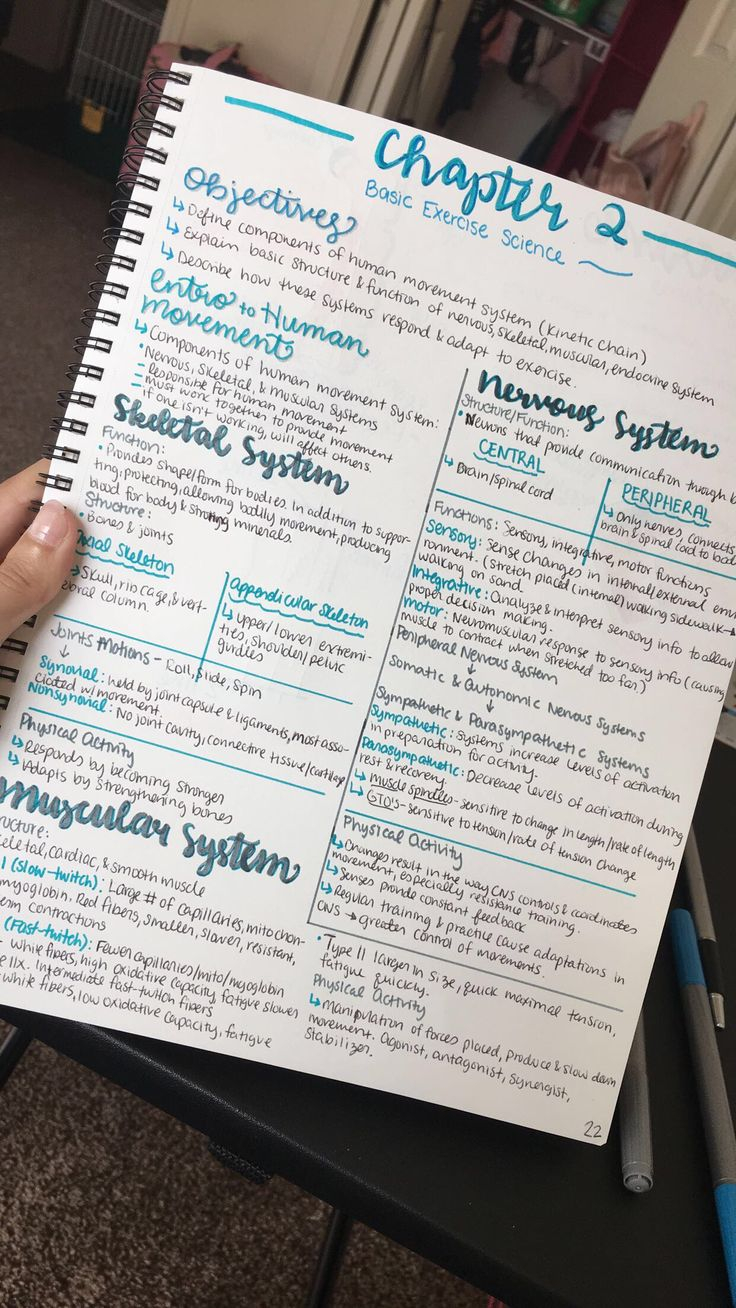 Chapter 2
Basic Exercise Science
Objectives
↳ Define components of human movement system (kinetic chain)
↳ Explain basic structure & function of nervous, skeletal, muscular, endocrine system
↳ Describe how these systems respond & adapt to exercise.
Intro to Human
movement
↳ Components of human movement system:
• Nervous, Skeletal, & muscular systems
- responsible for human movement
- must work together to provide movement
- if one isn't working, will affect others.
Skeletal System
Function:
• Provides shape/form for bodies. In addition to suppor-
ting, protecting, allowing bodily movement, producing
blood for body & storing minerals.
Structure:
• Bones & joints
axial skeleton
→ Skull, rib cage, & vert-
ebral column.
appendicular skeleton
↳ upper/lower extremi-
ties, shoulder/pelvic
girdles
Joints Motions - Roll, Slide, Spin
↓
Synovial: held by joint capsule & ligaments, most asso-
ciated w/movement.
Nonsynovial: No joint cavity, connective tissue/cartilage
Physical Activity
↳ Responds by becoming stronger
↳ Adapts by strengthening bones
muscular System
ructure:
eletal, cardiac, & smooth muscle
1 (Slow-twitch): Large # of capillaries, mitochon-
myoglobin. Red fibers, smaller, slower, resistant,
erm contractions
(Fast-twitch): Fewer capillaries/mito/myoglobin
White fibers, high oxidative capacity, fatigue slower
e IIx. Intermediate fast-twitch fibers
white fibers, low oxidative capacity, fatigue
nervous System
Structure/Function:
• Neurons that provide communication through b
CENTRAL
↳ Brain/spinal cord
PERIPHERAL
↳ Only nerves, connects
brain & spinal cord to bod
Functions: Sensory, integrative, motor functions
Sensory: Sense changes in internal/external envi
ronment. (Stretch placed (internal) walking sidewalk →
walking on sand
Integrative: Analyze & interpret sensory info to allow
proper decision making.
motor: Neuromuscular response to sensory info (causing
muscle to contract when stretched too far)
Peripheral Nervous System
↓
Somatic & Autonomic Nervous Systems
↓
Sympathetic & Parasympathetic Systems
Sympathetic: Systems increase levels of activation
in preparation for activity.
Parasympathetic: Decrease levels of activation during
rest & recovery.
↳ muscle spindles - sensitive to change in length/rate of length
↳ GTO's - sensitive to tension/rate of tension change
Physical Activity
↳ Changes result in the way CNS controls & coordinates
movement, especially resistance training.
↳ Senses provide constant feedback
↳ Regular training & practice cause adaptations in
CNS → greater control of movements.
• Type II larger in size, quick maximal tension,
fatigue quickly.
Physical Activity
↳ Manipulation of forces placed, produce & slow down
movement. Agonist, antagonist, synergist,
stabilizer.
22